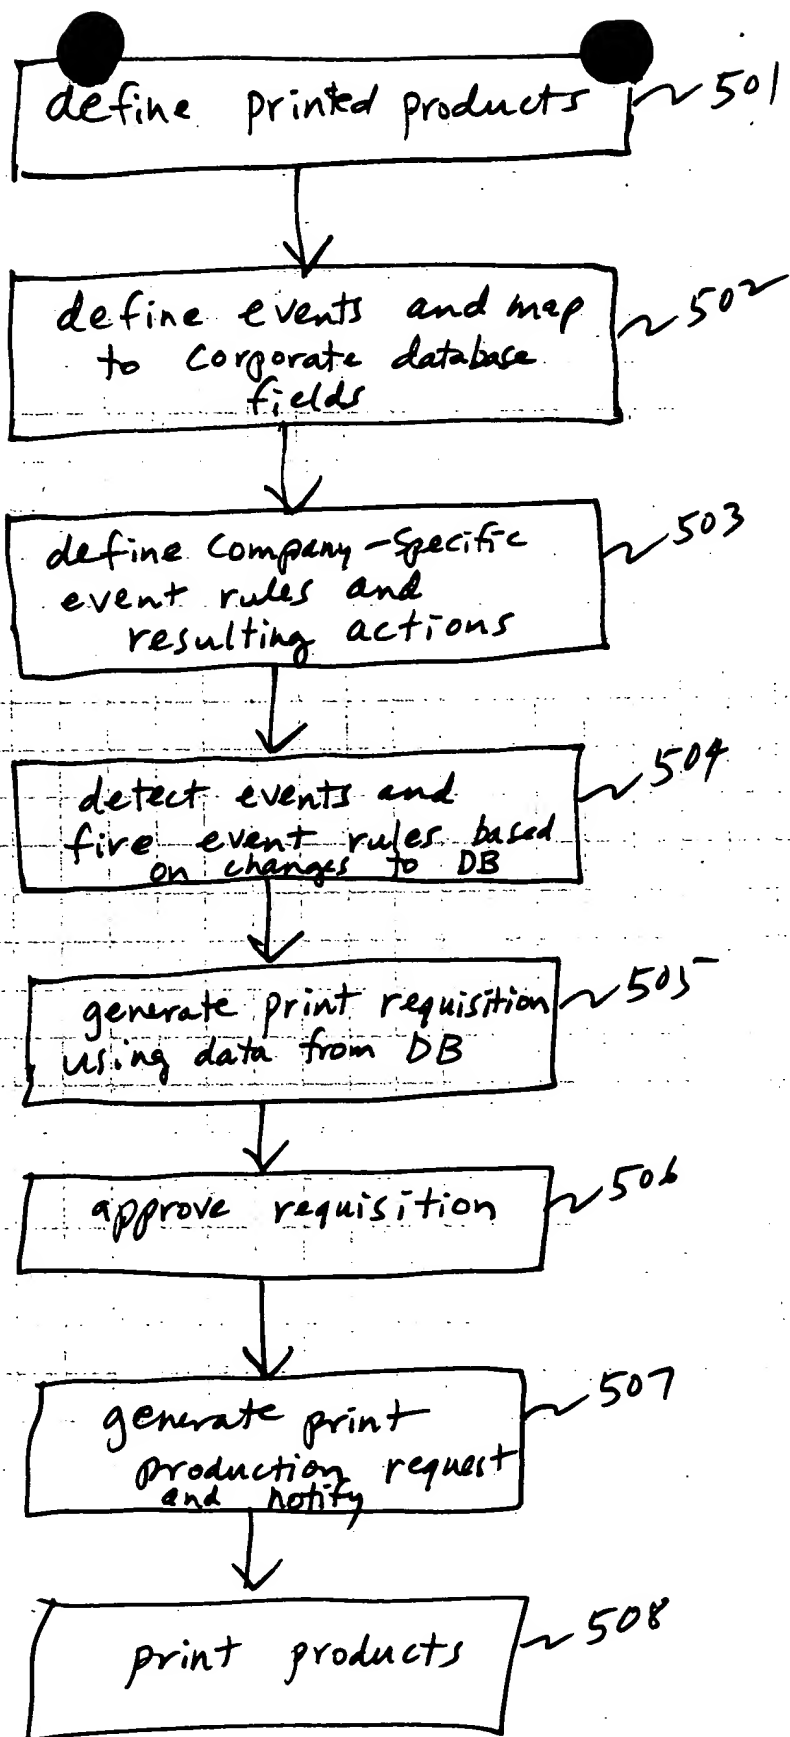 define printed products 501
define events and map 502
to corporate database
fields
define Company-Specific 503
event rules and
resulting actions
detect events and 504
fire event rules based
on changes to DB
generate print requisition 505
using data from DB
approve requisition 506
generate print 507
production request
and notify
print products 508